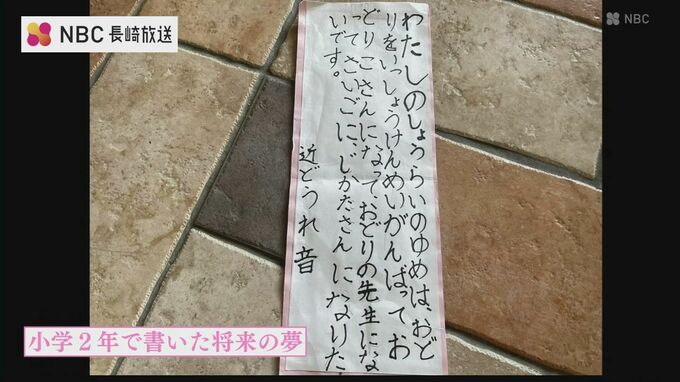 NBC 長崎放送
NBC
わたしのしょうらいのゆめは、おど
りをいっしょうけんめいがんばってお
どりこさんになって、おどりの先生にな
ってさいごに、じかたさんになりた
いです。
近どうれ音
小学2年で書いた将来の夢